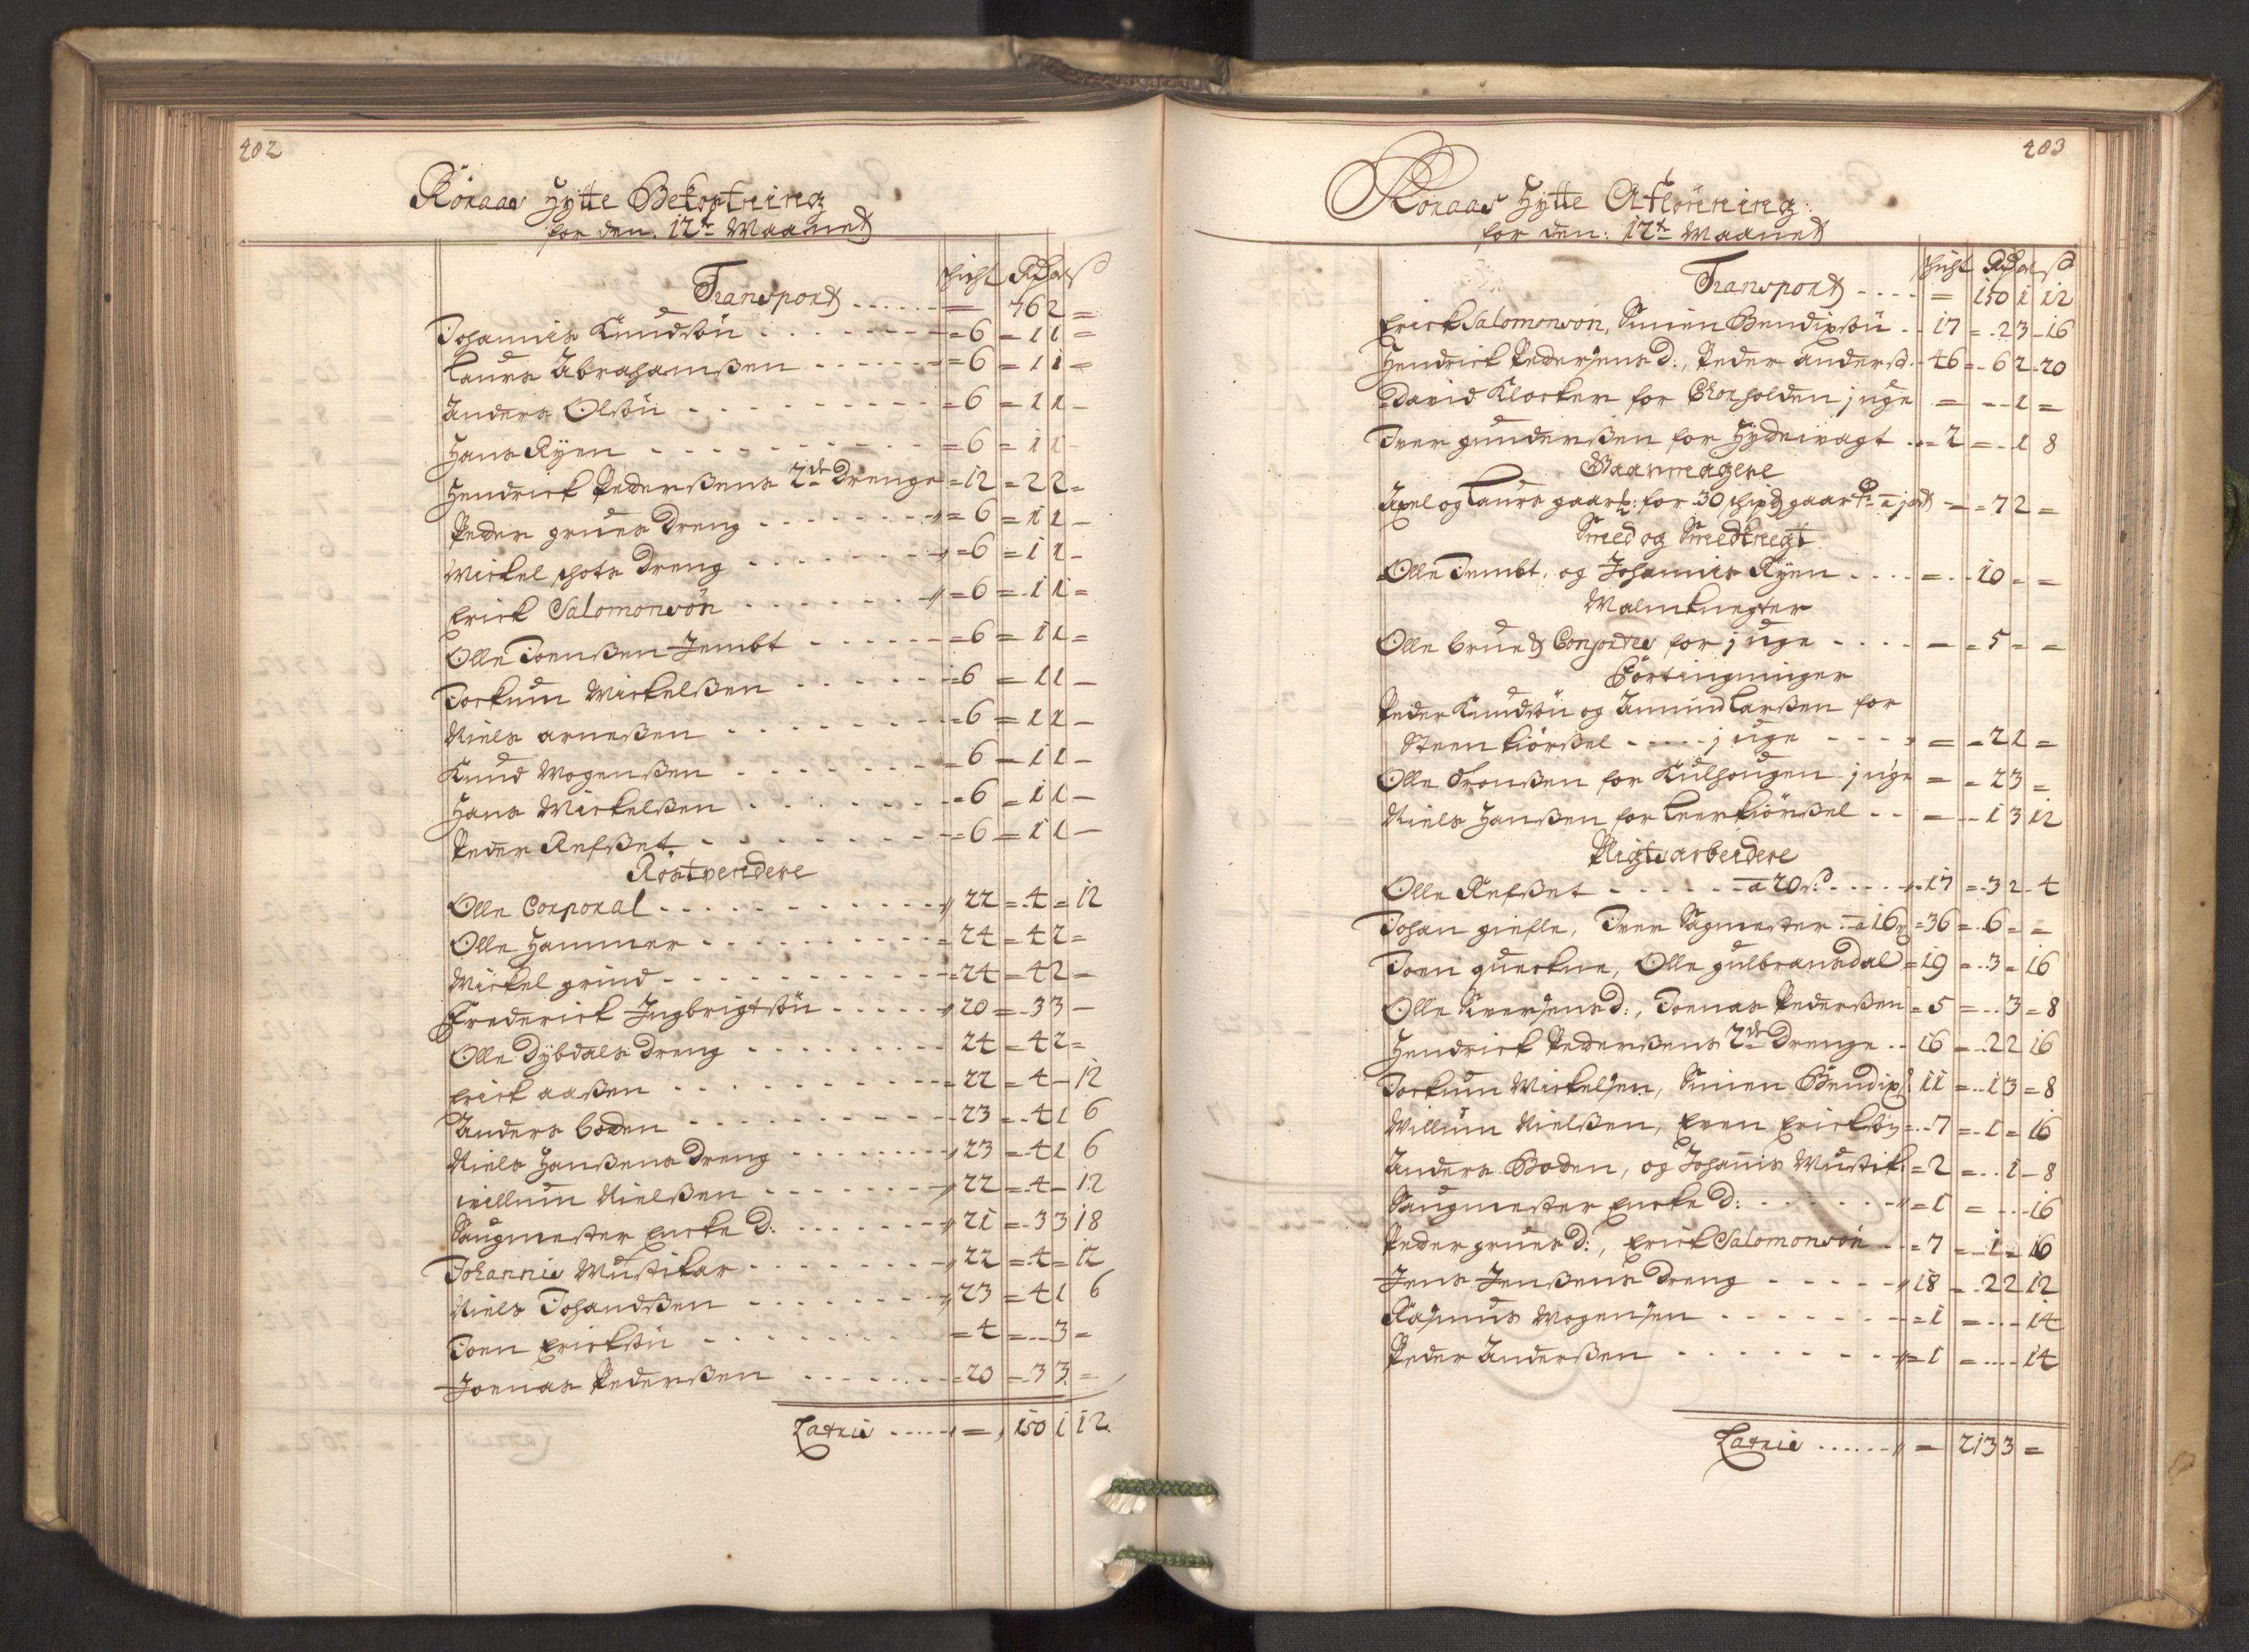 402
Röraas Hytte Bekostning
for den. 12te Maanet
Schicht Rdr ort s
Transport ...... = 76 2 =
Johannis Knudsön ...... = 6 = 1 1 =
Laurs Abrahamßen ...... = 6 = 1 1 =
Anders Olsön ...... = 6 = 1 1 -
Hans Ryen ...... = 6 = 1 1 -
Hendrick Pederßens 2de Drenge = 12 = 2 2 =
Peder grues Dreng ...... = 6 = 1 1 -
Mickel Dreng ...... = 6 = 1 1 -
Erick Salomonsön ...... = 6 = 1 1 =
Olle Joenßen Jembt ...... = 6 = 1 1 =
Jockum Mickelßen ...... = 6 = 1 1 -
Niels arneßen ...... = 6 = 1 1 -
Knud Mogenßen ...... = 6 = 1 1 -
Hans Mickelßen ...... = 6 = 1 1 -
Peder Refßet ...... = 6 = 1 1 -
Röstvendere
Olle Corporal ...... 22 = 4 = 12
Olle Hammer ...... = 24 = 4 2 =
Mickel grind ...... = 24 = 4 2 =
Frederick Ingbrigtsön ...... 20 = 3 3 -
Olle Dybdals Dreng ...... 24 = 4 2 =
Erick aaßen ...... = 22 = 4 - 12
Anders boden ...... 23 = 4 1 6
Niels Hanßens Dreng ...... 23 = 4 1 6
willum Nielßen ...... 22 = 4 - 12
Saugmester Encke D: ...... 21 = 3 3 18
Johannis Musikar ...... 22 = 4 = 12
Niels Johandßen ...... 23 = 4 1 6
Joen Ericksön ...... = 4 = - 3 =
Joenas Pederßen ...... = 20 = 3 3 =
Latris ...... = 150 1 12
403
Röraas Hytte Aflönning:
for den: 12te Maanet
Schicht Rdr ort s
Transport .... = 150 1 12
Erick Salomonsön, Simen Bendixsön .. 17 = 2 3 - 16
Hendrick Pedersens D:, Peder anderß. 46 = 6 2 - 20
David Klocker for Chorholden j uge = - - 1 =
Iver gunderßen for Hydevagt .. = 2 = - 1 8
Gaarmagere
Axel og Laurs gaarh: for 30 schipd gaar = = 7 2 =
Smed og Smedknegt
Olle Jembt, og Johannis Ryen .... = - 10 - =
Malmknegter
Olle brue & Consortes for j uge .... = = 5 = =
Förtingninger
Peder Knudsön og Amund Larßen for
Steen kiörßel ..... j uge .... = = 2 1 =
Olle Tronßen for Kulhougen j uge = = 2 3 =
Niels Hanßen for Leerkiörßel .. = - 1 3 12
Pligtsarbeidere
Olle Refßet ...... a 20 s. ...... 17 = 3 2 - 4
Johan giefle, Iver Sagmester. a 16 s = 36 = 6 = =
Joen quekne, Olle gulbransdal = 19 = 3 = 16
Olle Iversens D:, Joenas Pederßen = 5 = - 3 = 8
Hendrick Pederßens 2de Drenge .. 16 = 2 2 16
Jockum Mickelsen, Simen Bendixs. 11 = 1 3 = 8
Willum Nielßen, Even Ericksön = 7 = 1 = 16
Anders Boden, og Johannis Musik. = 2 = - 1 - 8
Saugmester Encke D: ...... = 1 = - - 16
Peder grues D:, Erick Salomonsön .. = 7 = 1 = 16
Jens Jenßens Dreng ...... 18 = 2 2 12
Rasmus Mogensen ...... = 1 = - - 14
Peder Anderßen ...... = 1 = - - 14
Latris ...... = 213 3 =